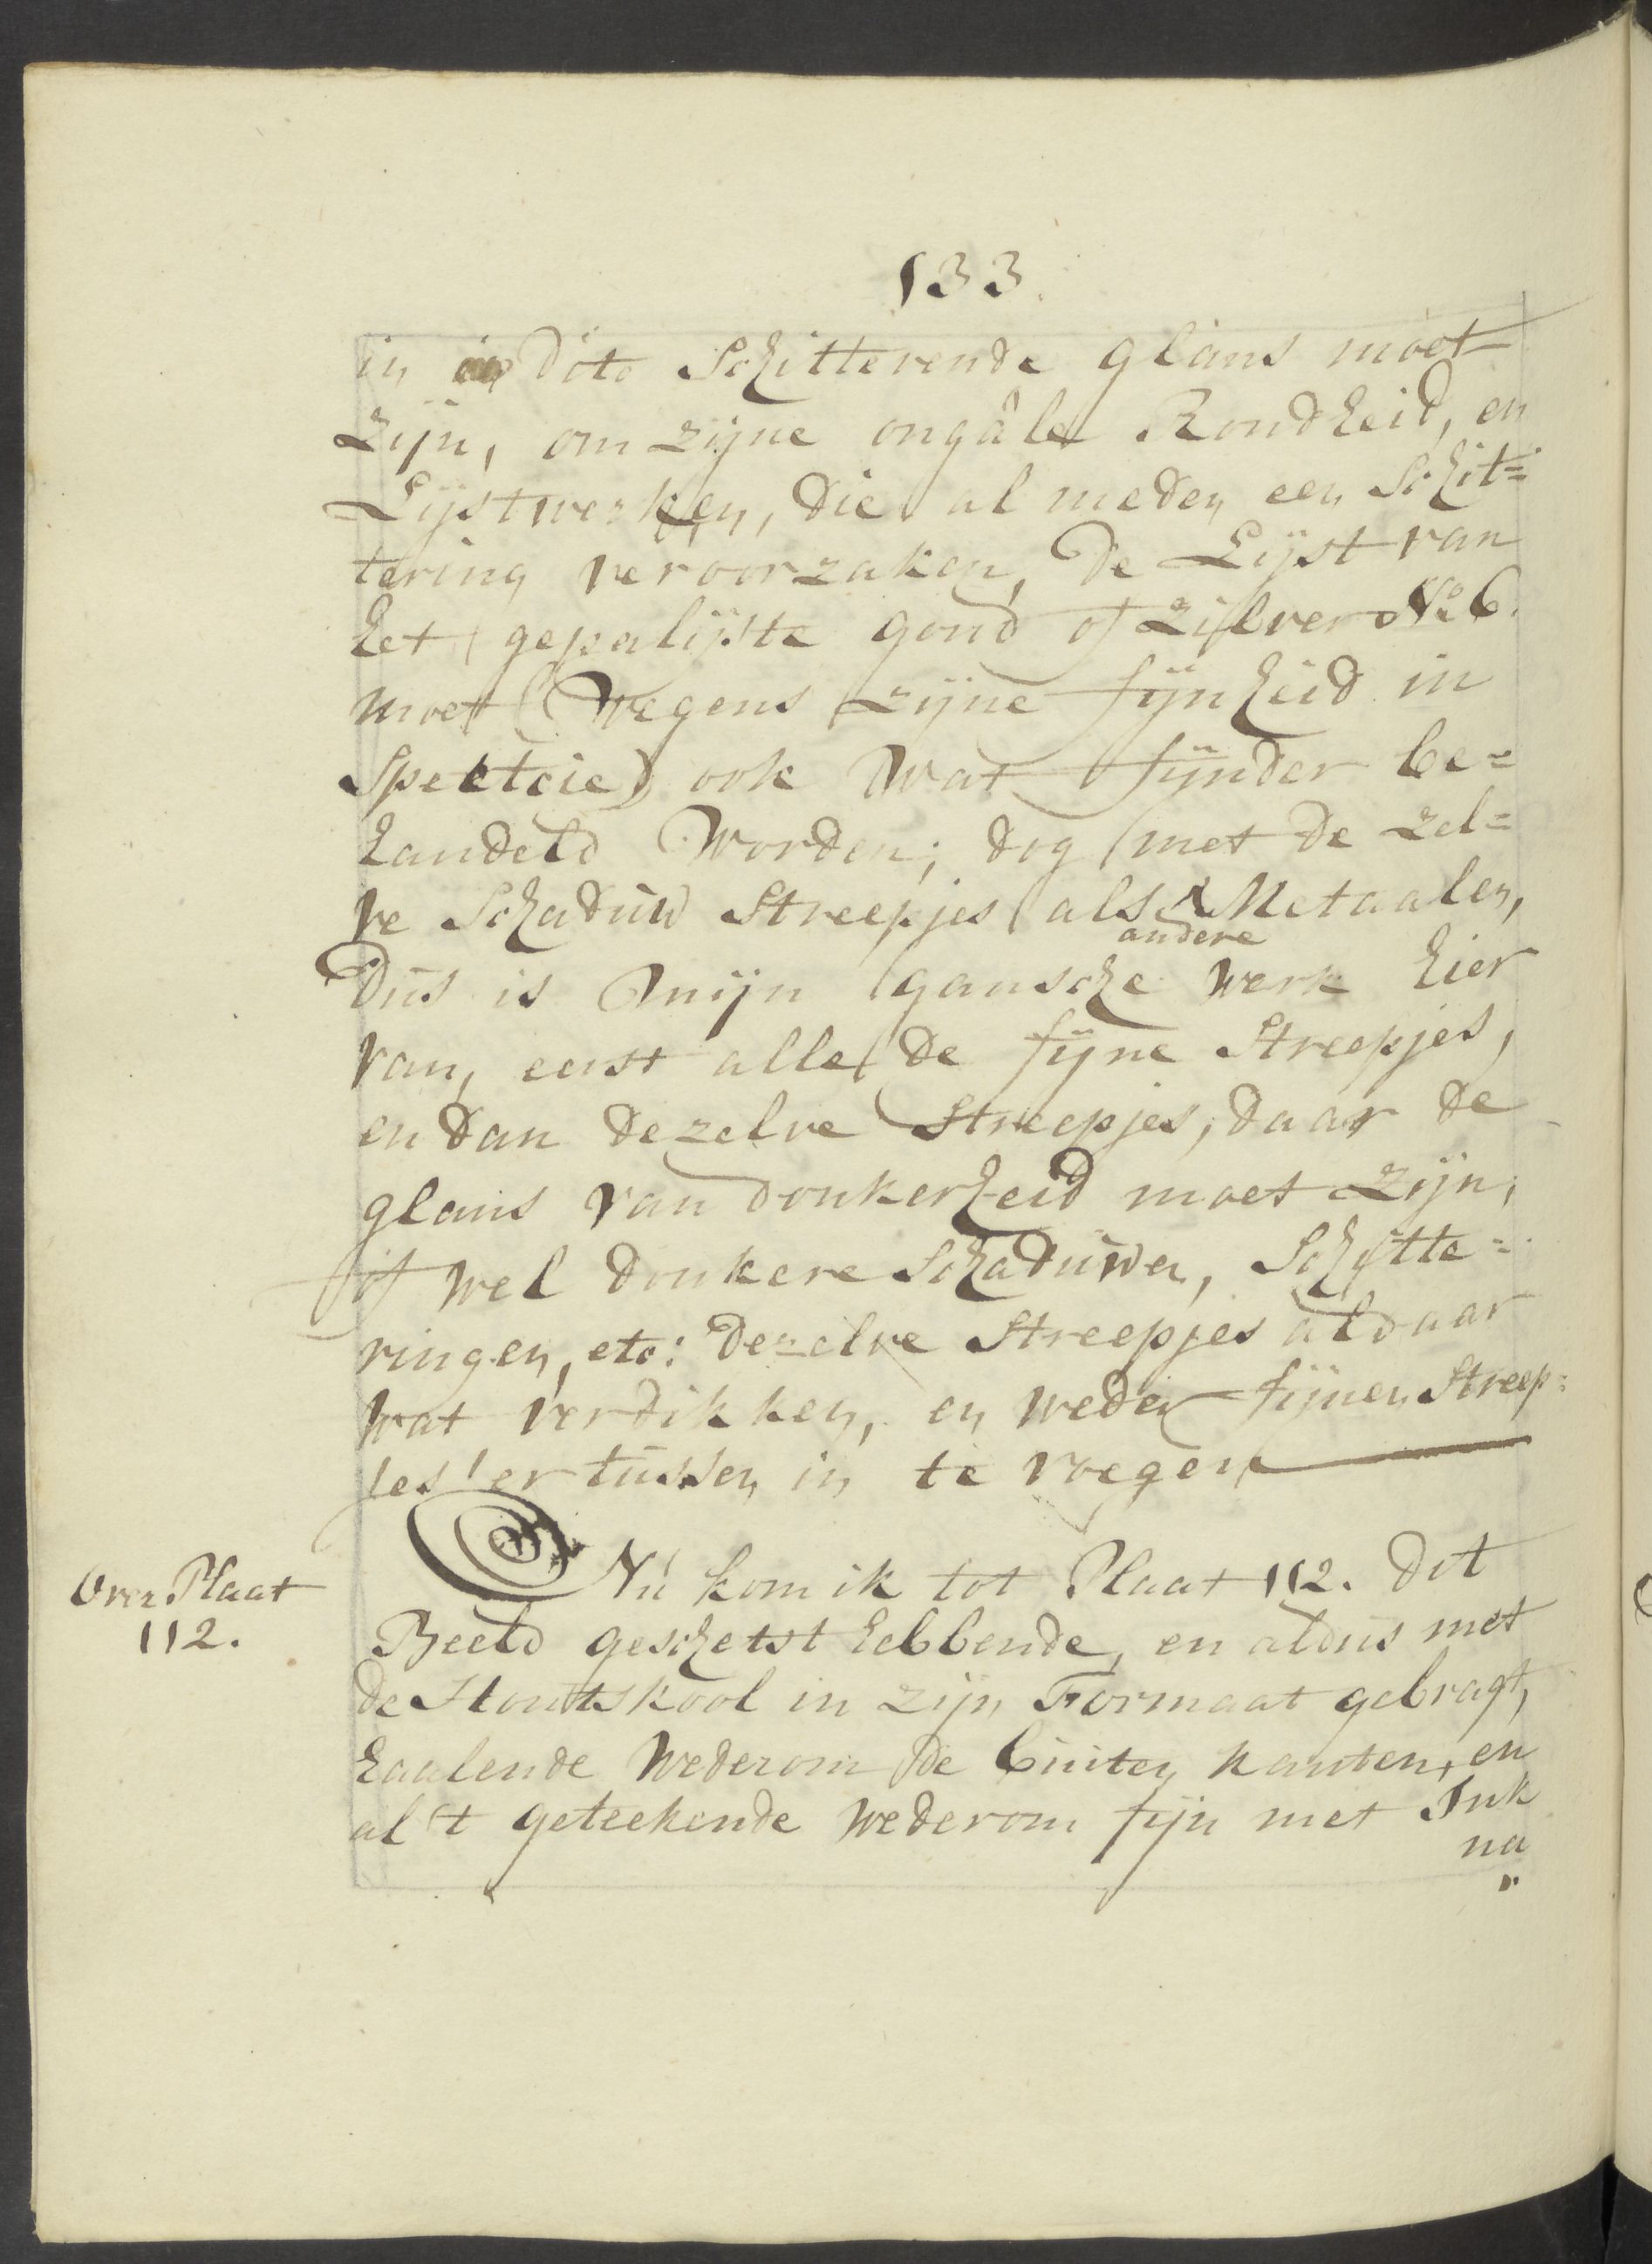 133.
in dito Schitterende glans moet
zijn, om zijne ongâle Rondheid, en
Lijstwerken, die al meden een Schit=
tering veroorzaken, De Lijst van
het gepalijste goud of Zilver No. 6.
moet (Wegens zijne fijnheid in
Spektcie) ook wat fijnder be=
handeld Worden; dog met de zel=
ve Schaduw Streepjes als andere Metaalen,
Dus is mijn gansche Werk hier
van, eerst alle de fijne Streepjes,
en dan dezelve Streepjes, daar de
glans van donkerheid moet zijn,
of wel donkere Schaduwen, Schitte=
ringen, etc: Dezelve Streepjes aldaar
wat verdikken, en weder fijnen Streep=
jes er tussen in te voegen
Over Plaat
112.
Nu kom ik tot Plaat 112. Dit
Beeld geschetst hebbende, en aldus met
de Houtskool in zijn Formaat gebragt,
haalende Wederom de buiten kanten, en
al 't geteekende Wederom fijn met Ink
na